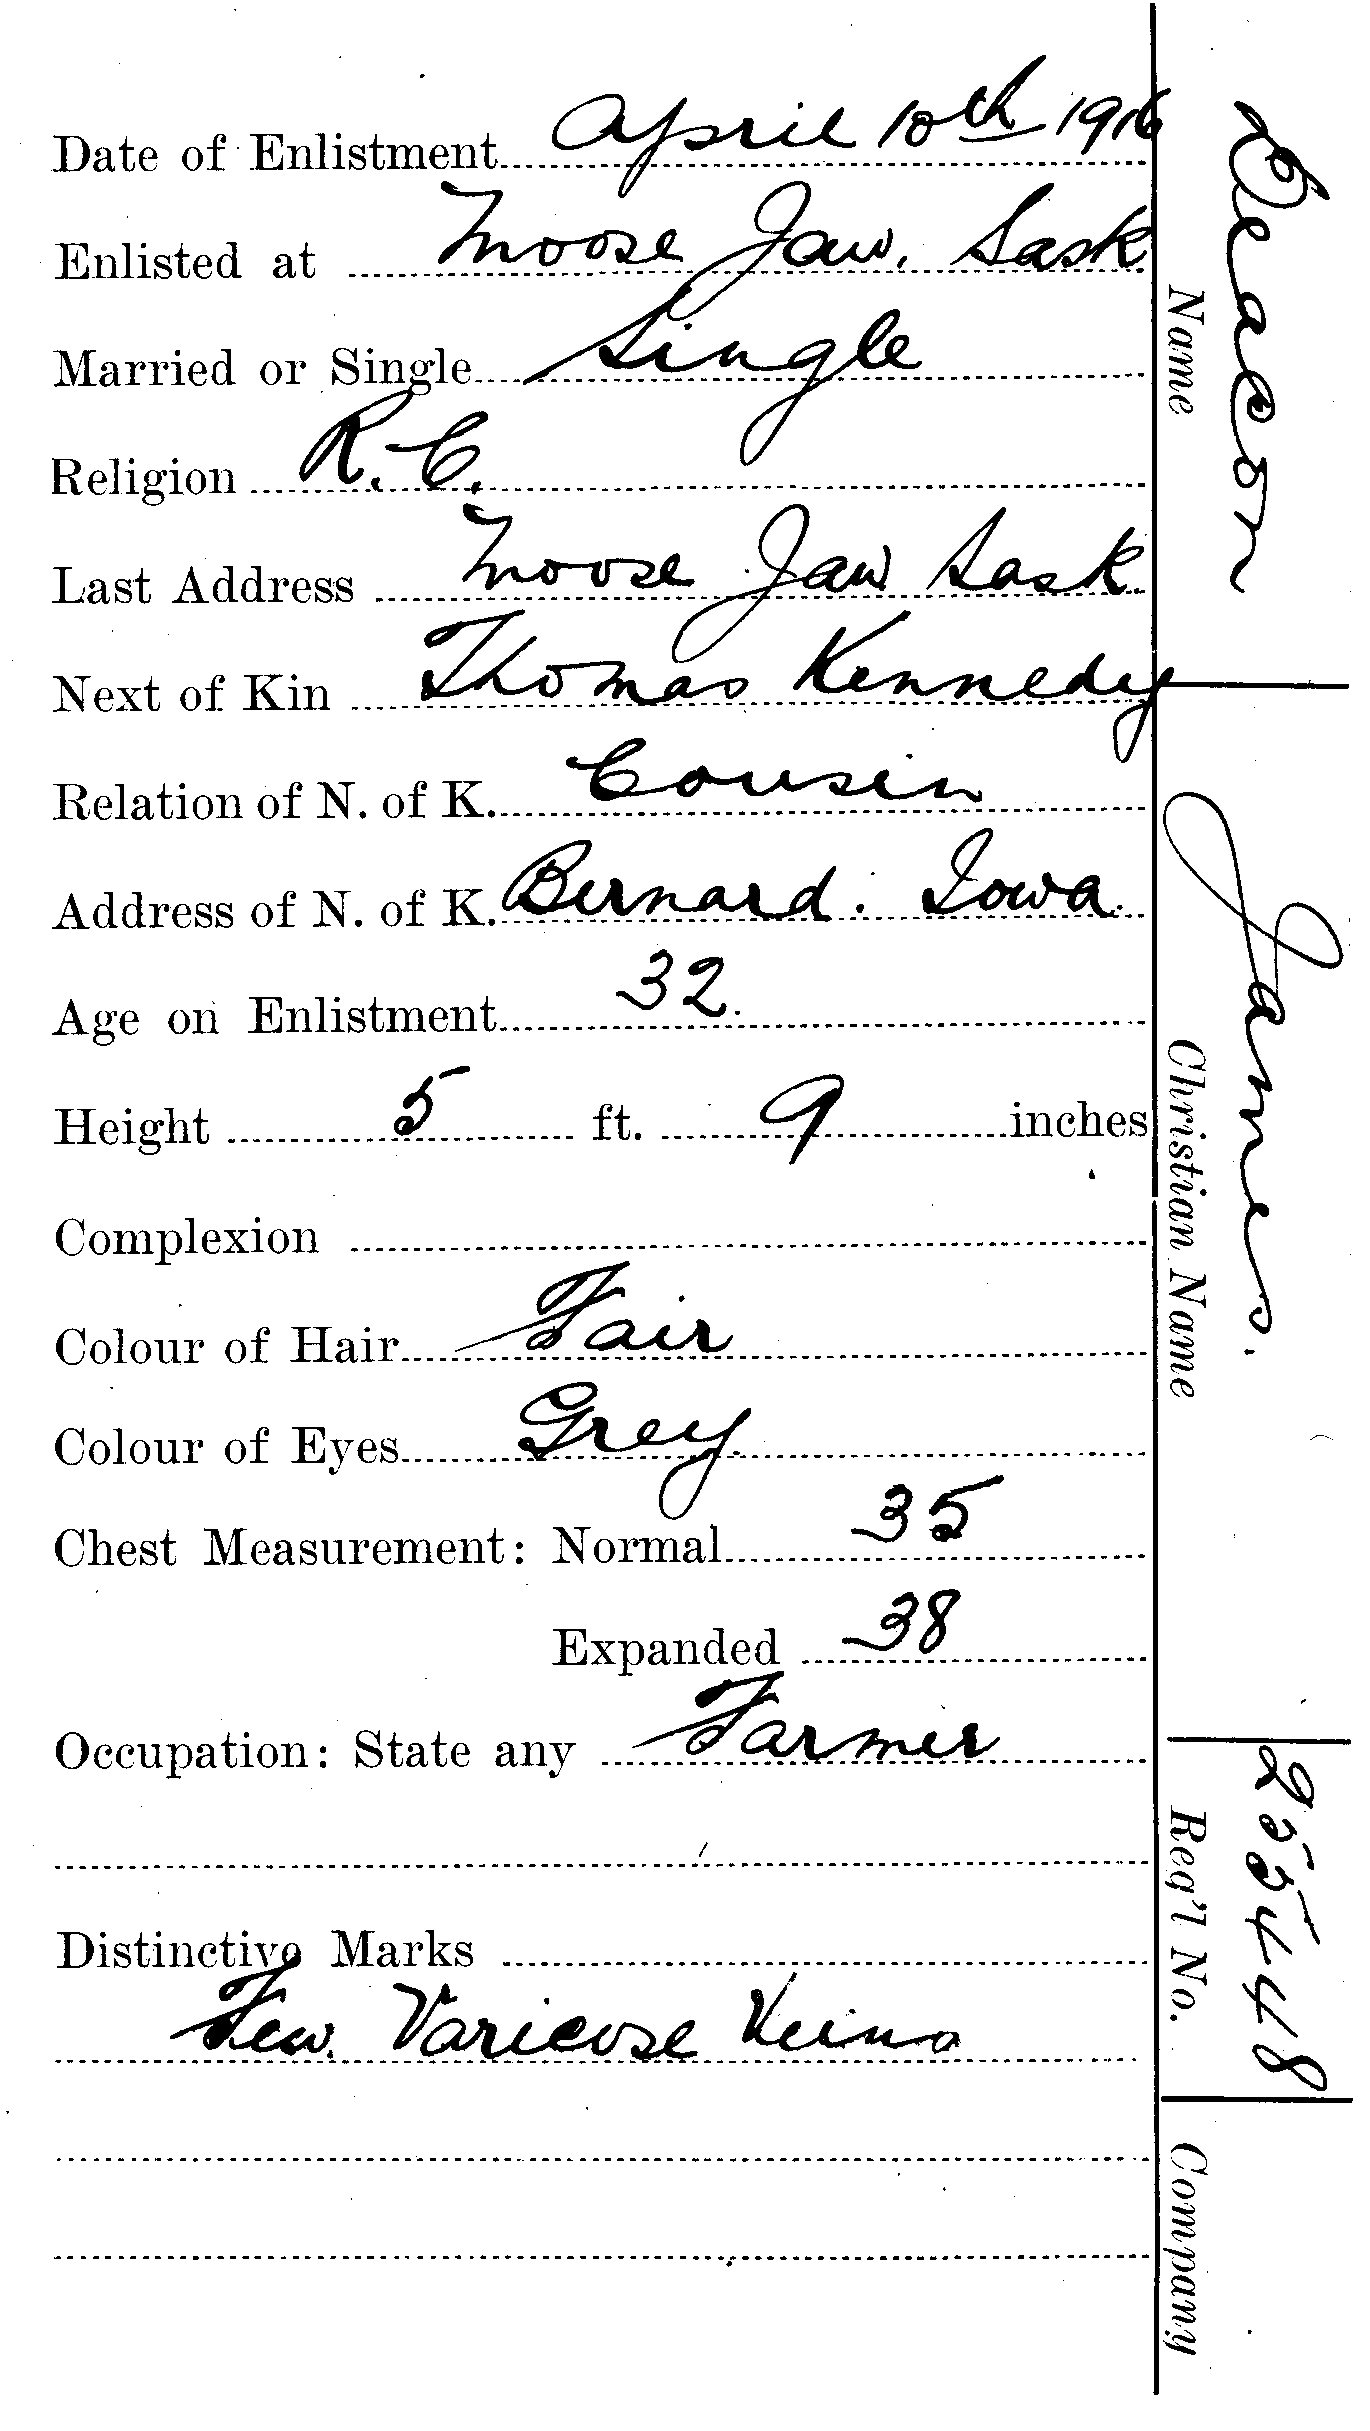 Date of Enlistment April 10th 1916
Enlisted at Moose Jaw, Sask
Married or Single Single
Religion R.C.
Last Address Moose Jaw Sask.
Next of Kin Thomas Kennedy
Relation of N. of K. Cousin
Address of N. of K. Bernard. Iowa.
Age on Enlistment 32.
Height 5 ft. 9 inches
Complexion
Colour of Hair Fair
Colour of Eyes Grey
Chest Measurement: Normal 35
Expanded 38
Occupation: State any Farmer
Distinctive Marks
Few. Varicose Veins
Name Deacon
Christian Name James.
Reg'l No. 255448
Company